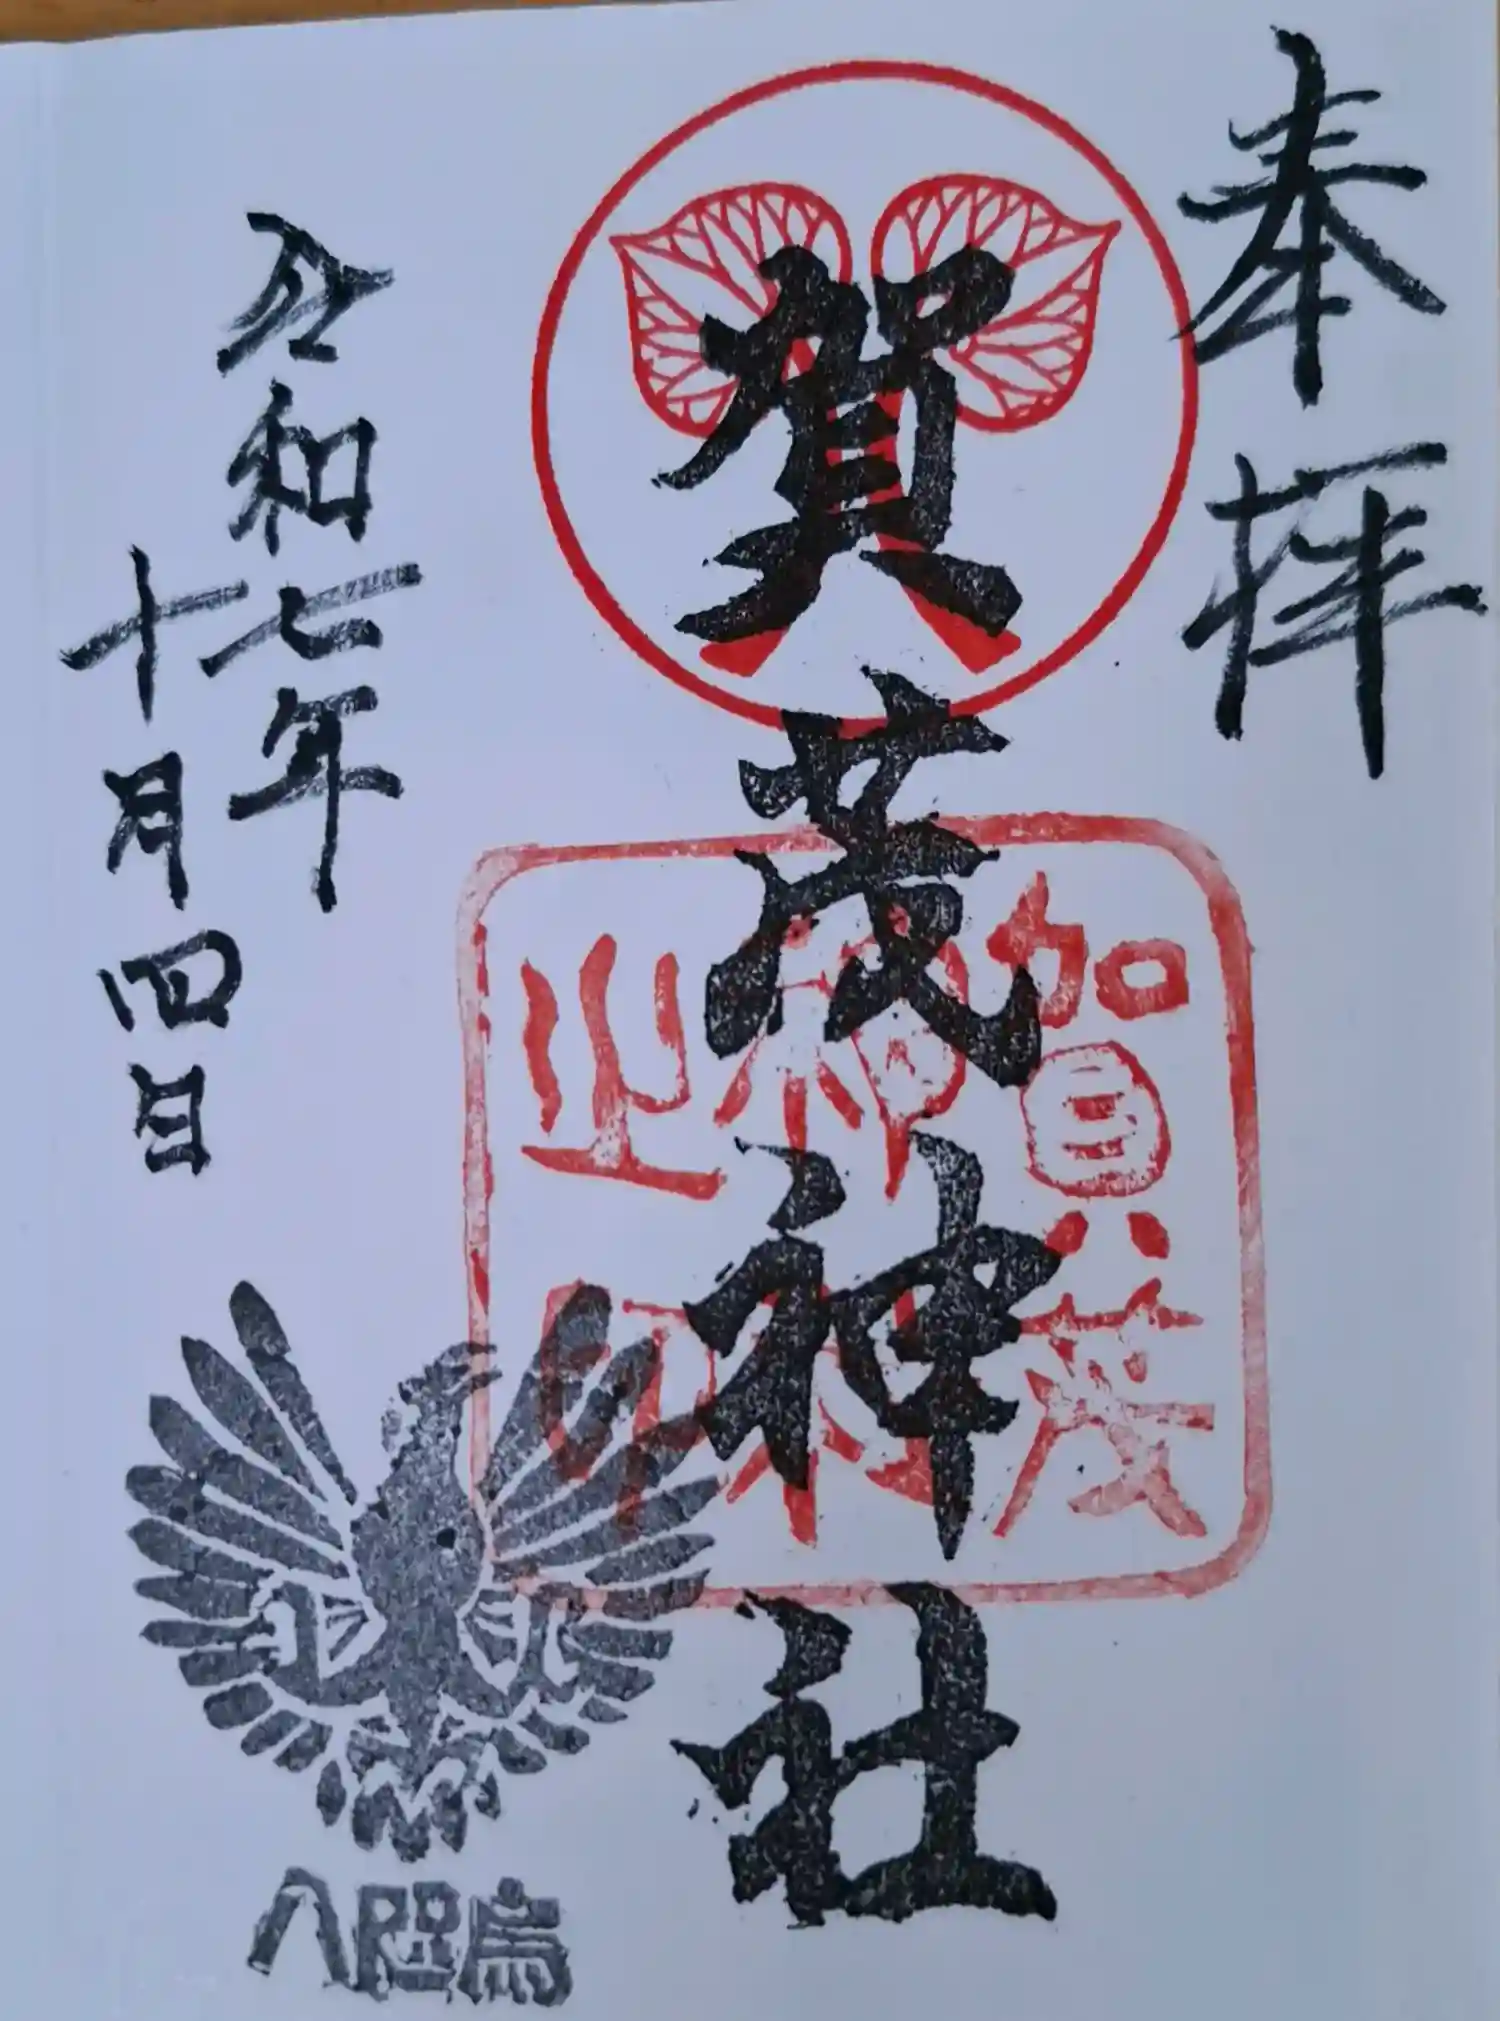 奉拝
賀茂神社
賀茂
神社
之印
令和七年
十月四日
八咫烏